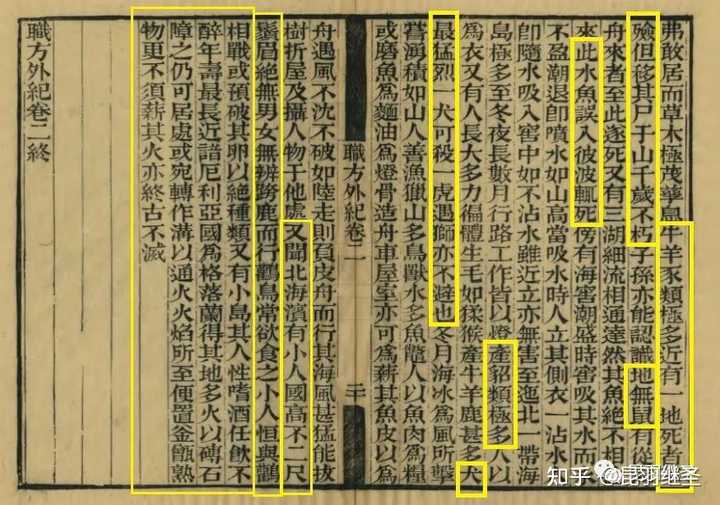 弗敢居而草木極茂華鳥牛羊豕類極多近有一地死者
殮但移其尸于山千歲不朽子孫亦能認識地無鼠有從
舟來者至此遂死又有三湖細流相通達然其魚絕不相
來此水魚誤入彼波輒死傍有海窖潮盛時窖吸其水而
不盈潮退即噴水如山高當吸水時人立其側衣一沾水
即隨水吸入窖中如不沾水雖近立亦無害至迤北一帶海
島極多至冬夜長數月行路工作皆以燈產貂類極多人以
爲衣又有人長大多力徧體生毛如猱猴產牛羊鹿甚多犬
最猛烈一犬可殺一虎遇獅亦不避也冬月海冰爲風所擊
嘗湧積如山人善漁獵山多鳥獸水多魚鱉人以魚肉爲糧
或磨魚爲麵油爲燈骨造舟車屋室亦可爲薪其魚皮以爲
職方外紀卷二 二十
舟遇風不沈不破如陸走則負皮舟而行其海風甚猛能拔
樹折屋及攝人物于他處又聞北海濱有小人國高不二尺
鬚眉絕無男女無辨跨鹿而行鸛鳥常欲食之小人恒與鸛
相戰或預破其卵以絕種類又有小島其人性嗜酒任飲不
醉年壽最長近諳厄利亞國爲格落蘭得其地多火以磚石
障之仍可居處或宛轉作溝以通火火焰所至便置釜甑熟
物更不須薪其火亦終古不滅
職方外紀卷二終
知乎 @昆羽继圣